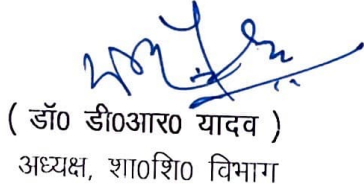 ( डॉ0 डी0आर0 यादव )
अध्यक्ष, शा0शि0 विभाग